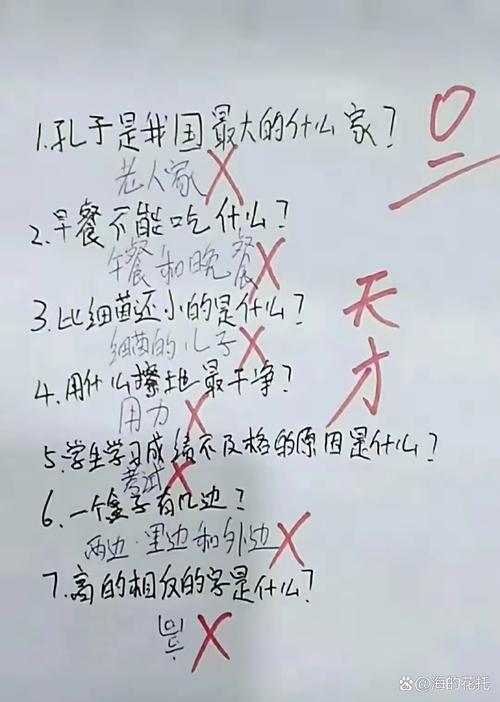 1.孔子是我国最大的什么家?
老人家
2.早餐不能吃什么?
午餐和晚餐
3.比细菌还小的是什么?
细菌的儿子
4.用什么擦地最干净?
用力
5.学生学习成绩不及格的原因是什么?
考试
6.一个盒子有几边?
两边·里边和外边
7.高的相反的字是什么?
0
天才
@海的花托